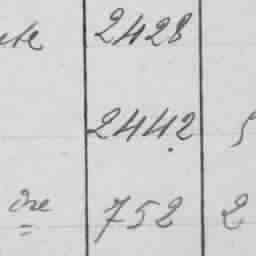 2428
2442 5
dre 752 2